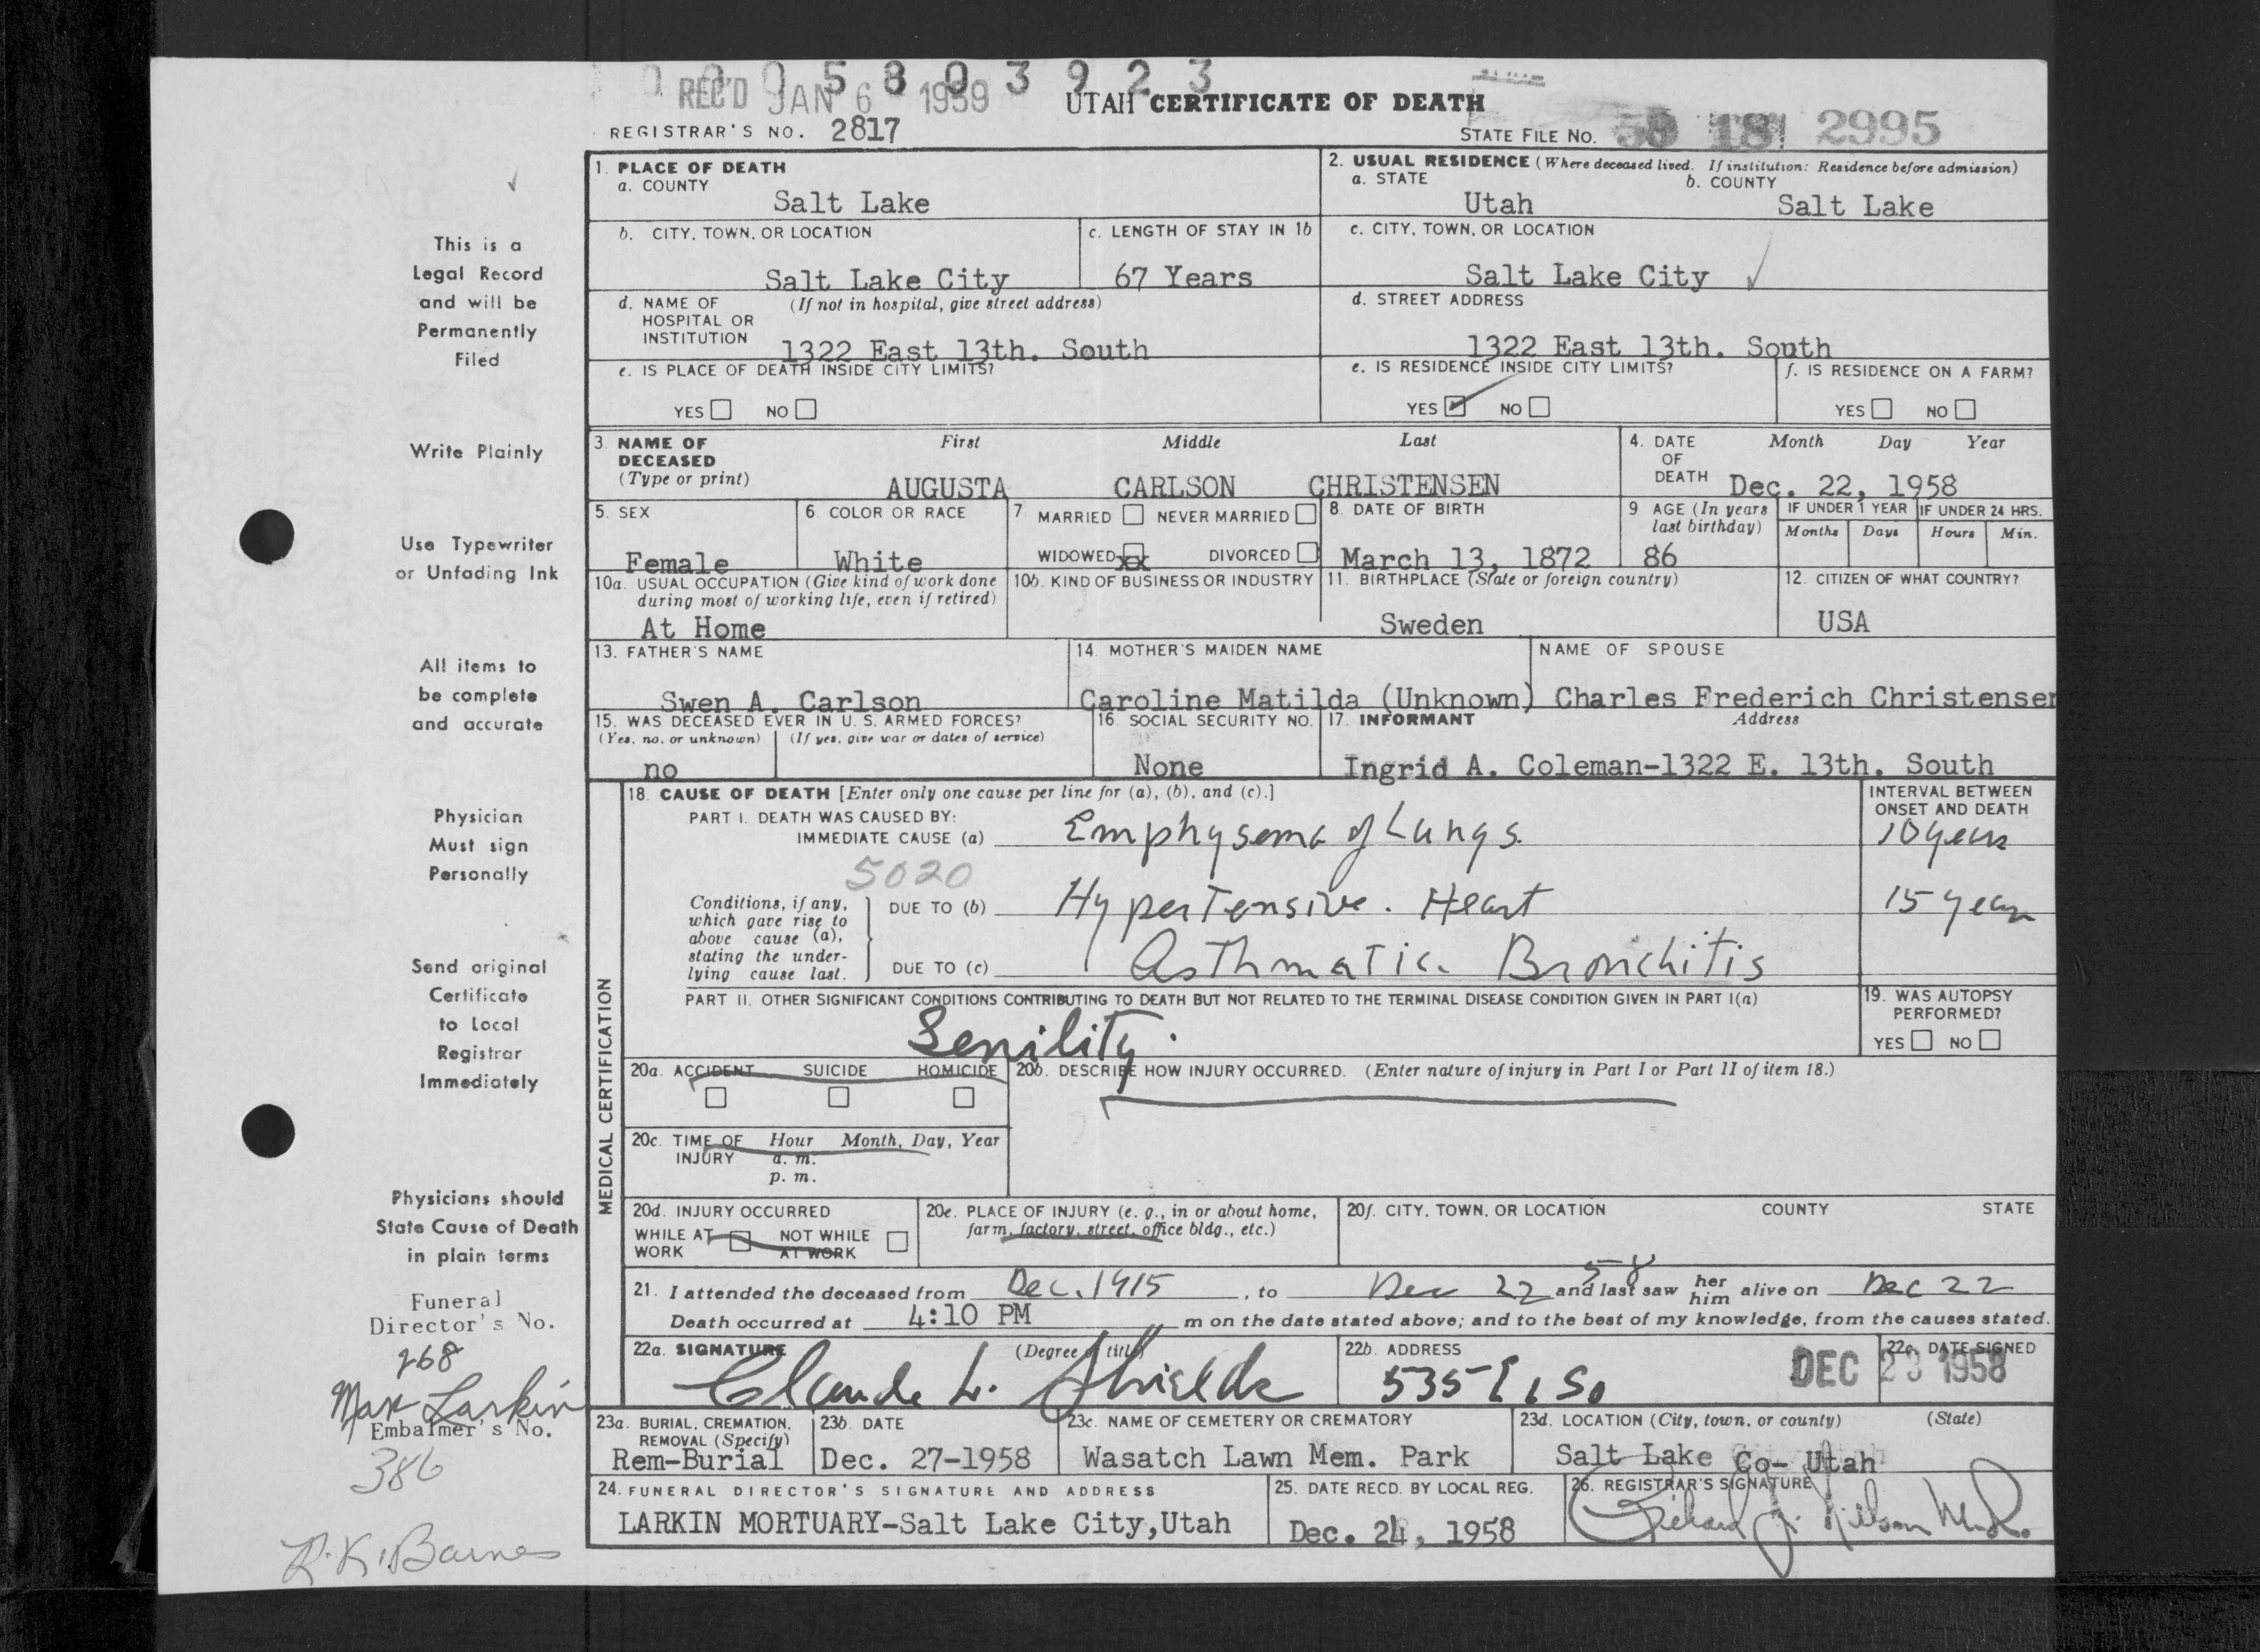 0 0 0 5 8 0 3 9 2 3
REC'D JAN 6 1959
UTAH CERTIFICATE OF DEATH
REGISTRAR'S NO. 2817
STATE FILE NO. 58 18 2995
1. PLACE OF DEATH
a. COUNTY
Salt Lake
2. USUAL RESIDENCE (Where deceased lived. If institution: Residence before admission)
a. STATE b. COUNTY
Utah Salt Lake
b. CITY, TOWN, OR LOCATION
Salt Lake City
c. LENGTH OF STAY IN 1b
67 Years
c. CITY, TOWN, OR LOCATION
Salt Lake City
d. NAME OF (If not in hospital, give street address)
HOSPITAL OR
INSTITUTION
1322 East 13th. South
d. STREET ADDRESS
1322 East 13th. South
e. IS PLACE OF DEATH INSIDE CITY LIMITS?
YES NO
e. IS RESIDENCE INSIDE CITY LIMITS?
YES NO
f. IS RESIDENCE ON A FARM?
YES NO
3. NAME OF First Middle Last
DECEASED
(Type or print)
AUGUSTA CARLSON CHRISTENSEN
4. DATE Month Day Year
OF
DEATH Dec. 22, 1958
5. SEX
Female
6. COLOR OR RACE
White
7 MARRIED NEVER MARRIED
WIDOWED xx DIVORCED
8. DATE OF BIRTH
March 13, 1872
9 AGE (In years
last birthday)
86
IF UNDER 1 YEAR
Months Days
IF UNDER 24 HRS.
Hours Min.
10a. USUAL OCCUPATION (Give kind of work done
during most of working life, even if retired)
At Home
10b. KIND OF BUSINESS OR INDUSTRY
11. BIRTHPLACE (State or foreign country)
Sweden
12. CITIZEN OF WHAT COUNTRY?
USA
13. FATHER'S NAME
Swen A. Carlson
14. MOTHER'S MAIDEN NAME
Caroline Matilda (Unknown)
NAME OF SPOUSE
Charles Frederich Christensen
15. WAS DECEASED EVER IN U. S. ARMED FORCES?
(Yes, no, or unknown) (If yes, give war or dates of service)
no
16. SOCIAL SECURITY NO.
None
17. INFORMANT Address
Ingrid A. Coleman-1322 E. 13th. South
18. CAUSE OF DEATH [Enter only one cause per line for (a), (b), and (c).]
INTERVAL BETWEEN
ONSET AND DEATH
PART I. DEATH WAS CAUSED BY:
IMMEDIATE CAUSE (a) Emphysema of Lungs. 10 years
5020
Conditions, if any,
which gave rise to
above cause (a),
stating the under-
lying cause last.
DUE TO (b) Hypertensive. Heart 15 years
DUE TO (c) Asthmatic. Bronchitis
PART II. OTHER SIGNIFICANT CONDITIONS CONTRIBUTING TO DEATH BUT NOT RELATED TO THE TERMINAL DISEASE CONDITION GIVEN IN PART I(a)
Senility.
19. WAS AUTOPSY
PERFORMED?
YES NO
MEDICAL CERTIFICATION
20a. ACCIDENT SUICIDE HOMICIDE
20b. DESCRIBE HOW INJURY OCCURRED. (Enter nature of injury in Part I or Part II of item 18.)
20c. TIME OF Hour Month, Day, Year
INJURY a. m.
p. m.
20d. INJURY OCCURRED
WHILE AT NOT WHILE
WORK AT WORK
20e. PLACE OF INJURY (e. g., in or about home,
farm, factory, street, office bldg., etc.)
20f. CITY, TOWN, OR LOCATION COUNTY STATE
58
21. I attended the deceased from Dec. 1915, to Dec 22 and last saw her him alive on Dec 22
Death occurred at 4:10 PM m on the date stated above; and to the best of my knowledge, from the causes stated.
22a. SIGNATURE (Degree or title)
Claude L. Shields
22b. ADDRESS
535 E 1 So
22c. DATE SIGNED
DEC 23 1958
23a. BURIAL, CREMATION,
REMOVAL (Specify)
Rem-Burial
23b. DATE
Dec. 27-1958
23c. NAME OF CEMETERY OR CREMATORY
Wasatch Lawn Mem. Park
23d. LOCATION (City, town, or county) (State)
Salt Lake Co- Utah
24. FUNERAL DIRECTOR'S SIGNATURE AND ADDRESS
LARKIN MORTUARY-Salt Lake City,Utah
25. DATE RECD. BY LOCAL REG.
Dec. 24, 1958
26. REGISTRAR'S SIGNATURE
This is a
Legal Record
and will be
Permanently
Filed
Write Plainly
Use Typewriter
or Unfading Ink
All items to
be complete
and accurate
Physician
Must sign
Personally
Send original
Certificate
to Local
Registrar
Immediately
Physicians should
State Cause of Death
in plain terms
Funeral
Director's No.
268
Max Larkin
Embalmer's No.
386
R.K. Barnes